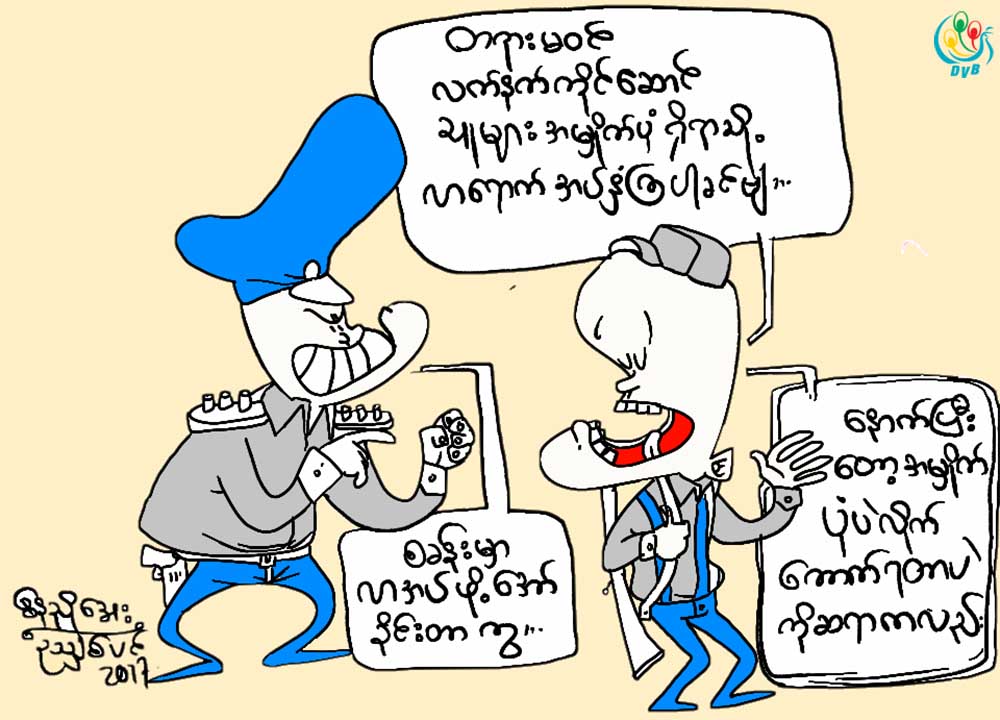 DVB
တရားမဝင်
လက်နက်ကိုင်ဆောင်
သူများ အမှိုက်ပုံ ရှိရာသို့
လာရောက် အပ်နှံကြ ပါခင်ဗျ....
စခန်းမှာ
လာအပ်ဖို့ အော်
ခိုင်းတာ ကွ....
နောက်ပြီး
တော့ အမှိုက်
ပုံပဲလိုက်
ကောက်ရတာပဲ
ကိုဆရာကလည်း
2017